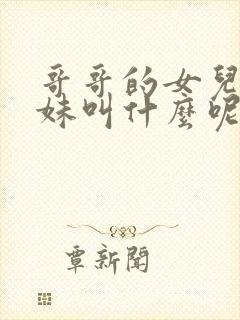 哥哥的女兒
妹叫什麼呢
覃新聞